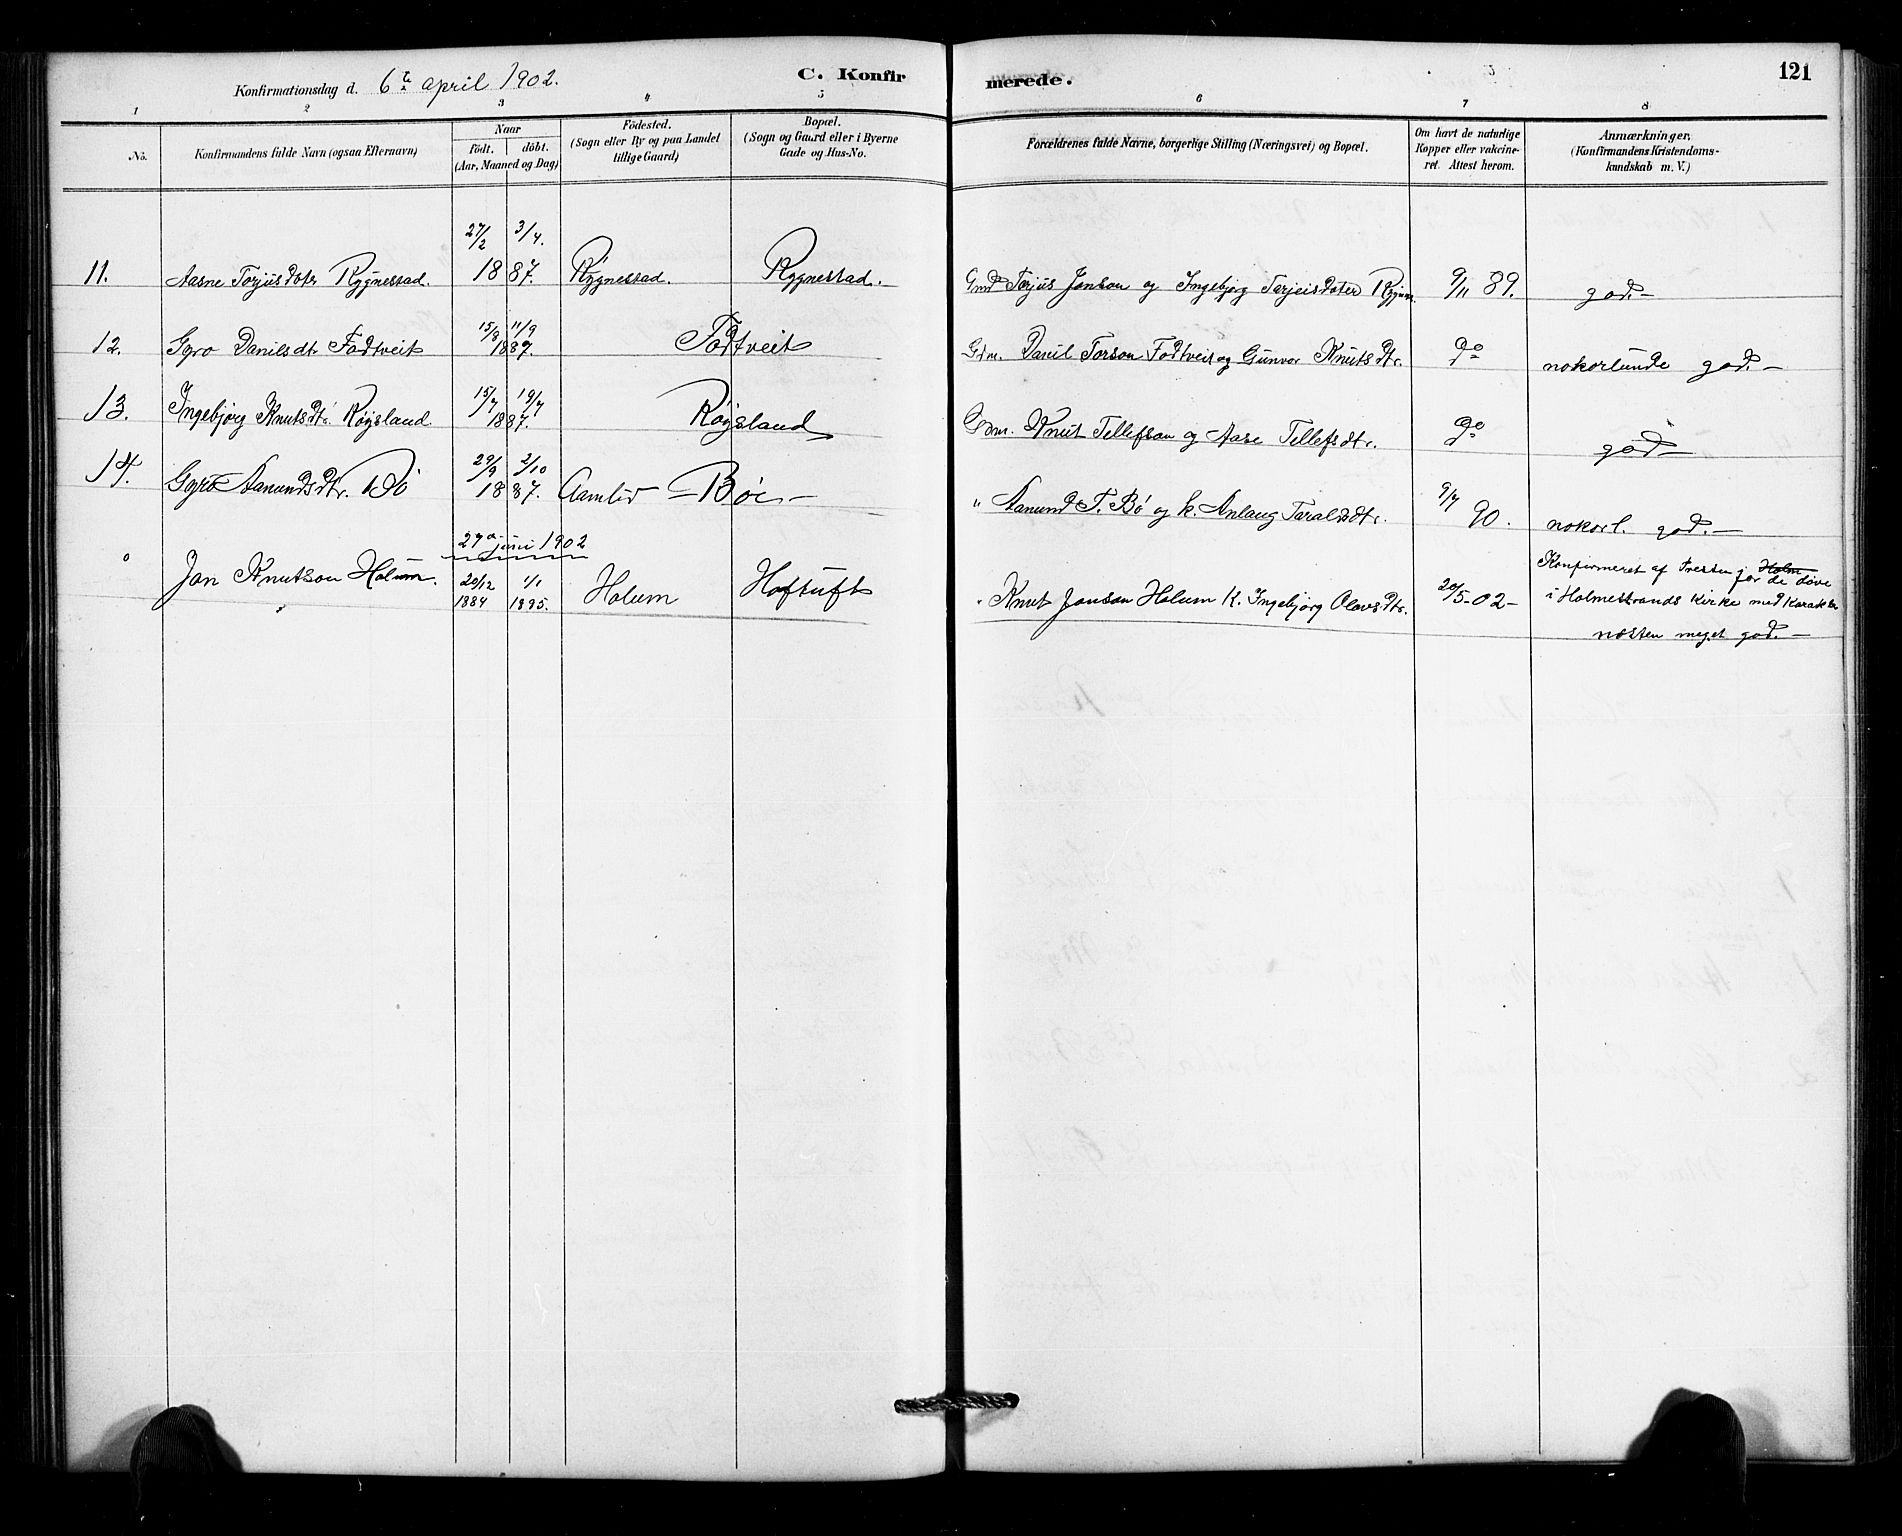 Konfirmationsdag d. 6te april 1902.
C. Konfirmerede.
121
1 2 3 4 5 6 7 8
No.
Konfirmandens fulde Navn (ogsaa Efternavn)
Naar
Födt. döbt.
(Aar, Maaned og Dag)
Födested.
(Sogn eller By og paa Landet
tillige Gaard)
Bopæl.
(Sogn og Gaard eller i Byerne
Gade og Hus-No.
Forældrenes fulde Navne, borgerlige Stilling (Næringsvei) og Bopæl.
Om havt de naturlige
Kopper eller vakcine-
ret. Attest herom.
Anmærkninger,
(Konfirmandens Kristendoms-
kundskab m. V.)
27/2 3/4.
11. Aasne Torjusdoter Rygnestad. 1887. Rygnestad. Rygnestad.— Gmd Torjus Jonson og Ingebjorg Tarjeisdoter Rygnes. 9/11 89. god.—
15/8 11/9
12. Gyro Danilsdtr Fodtveit 1887. Fodtveit Gdm. Danil Torson Fodtveit og Gunvor Knutsdtr. do nokorlunde god.—
15/7 19/7
13. Ingebjørg Knutsdtr. Røysland 1887. Røysland Gdm. Knut Tellefson og Aase Tellefsdtr. do god—
29/9 2/10
14. Gyro Aanundsdtr. Bö 1887. Aamlid — Bøe — " Aanund T. Bø og k. Anlaug Taraldsdtr. 9/7 90. nokorl. god.—
27a juni 1902
o Jon Knutson Holum. 20/12 1884 1/1 1895. Holum Hoftuft " Knut Jonson Holum K. Ingebjørg Olavsdtr. 20/5-02-
Konfirmeret af Presten for de døve
i Holmestrands Kirke med Karakter
næsten meget god.—